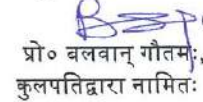 प्रो० बलवान् गौतमः,
कुलपतिद्वारा नामितः